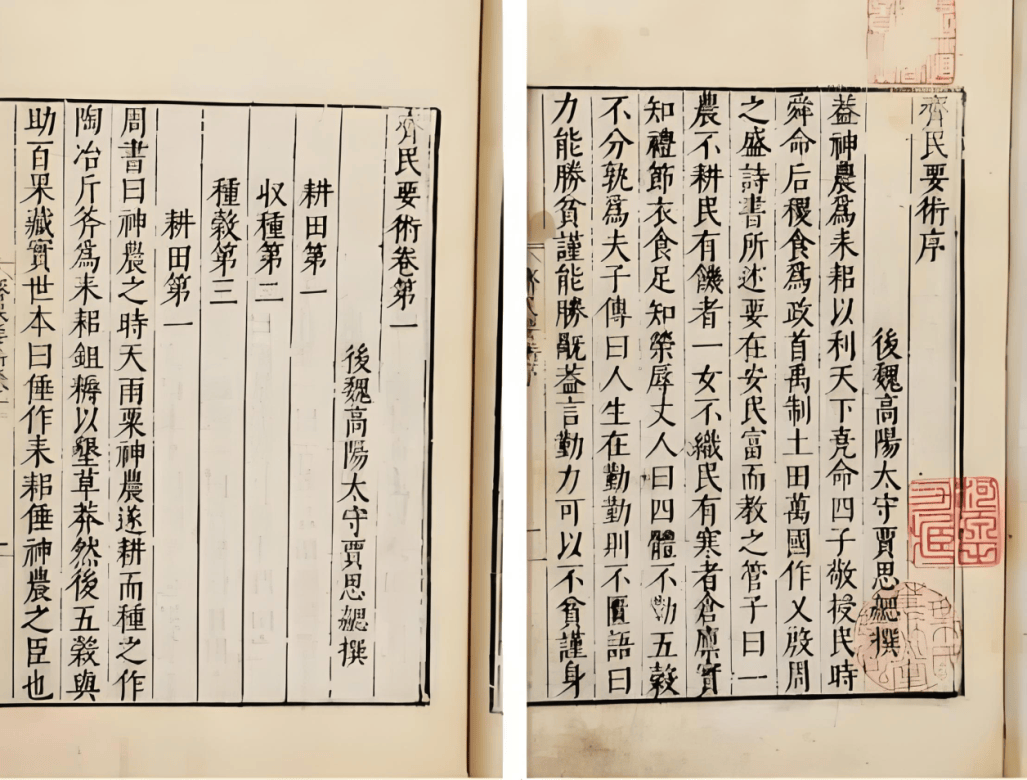 齊民要術序
後魏高陽太守賈思勰撰
葢神農爲耒耜以利天下堯命四子敬授民時
舜命后稷食爲政首禹制土田萬國作乂殷周
之盛詩書所述要在安民富而教之管子曰一
農不耕民有饑者一女不織民有寒者倉廪實
知禮節衣食足知榮辱丈人曰四體不勤五穀
不分孰爲夫子傳曰人生在勤勤則不匱語曰
力能勝貧謹能勝旤葢言勤力可以不貧謹身
齊民要術卷第一
後魏高陽太守賈思勰撰
耕田第一
収種第二
種穀第三
耕田第一
周書曰神農之時天雨粟神農遂耕而種之作
陶冶斤斧爲耒耜鉏耨以墾草莽然後五穀與
助百果藏實世本曰倕作耒耜倕神農之臣也